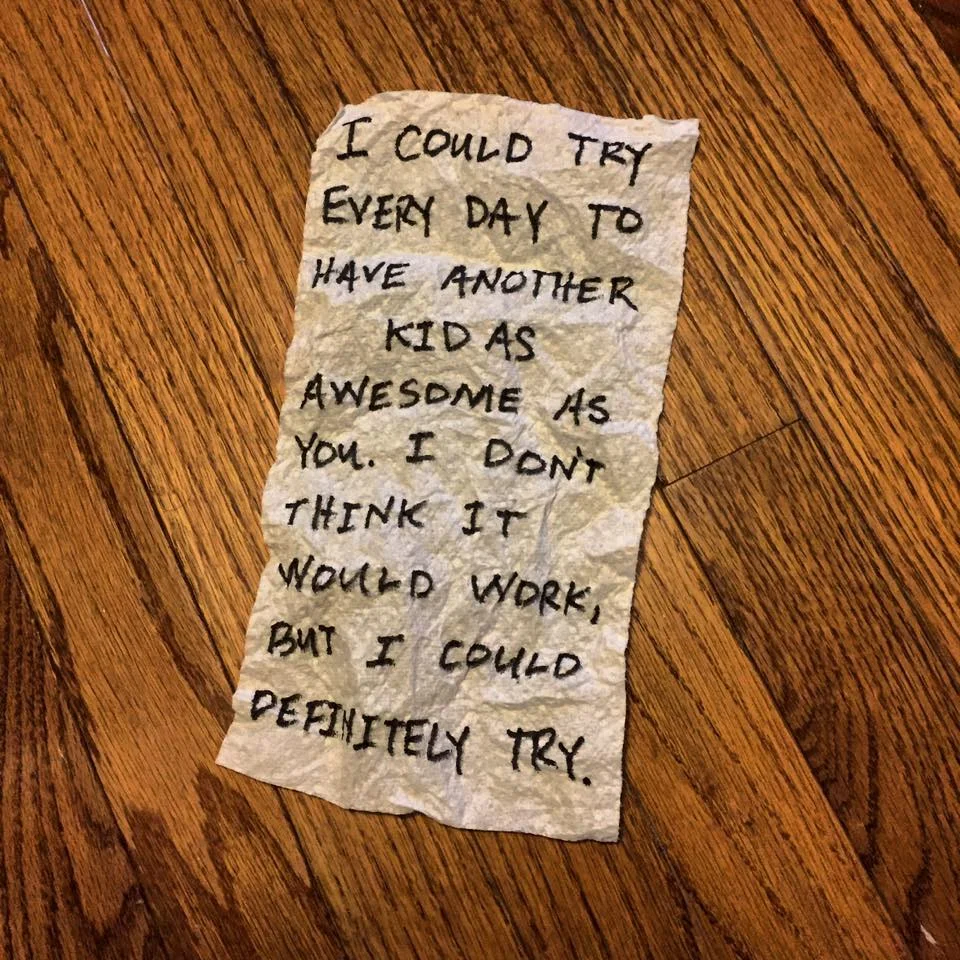 I COULD TRY
EVERY DAY TO
HAVE ANOTHER
KID AS
AWESOME AS
YOU. I DON'T
THINK IT
WOULD WORK,
BUT I COULD
DEFINITELY TRY.